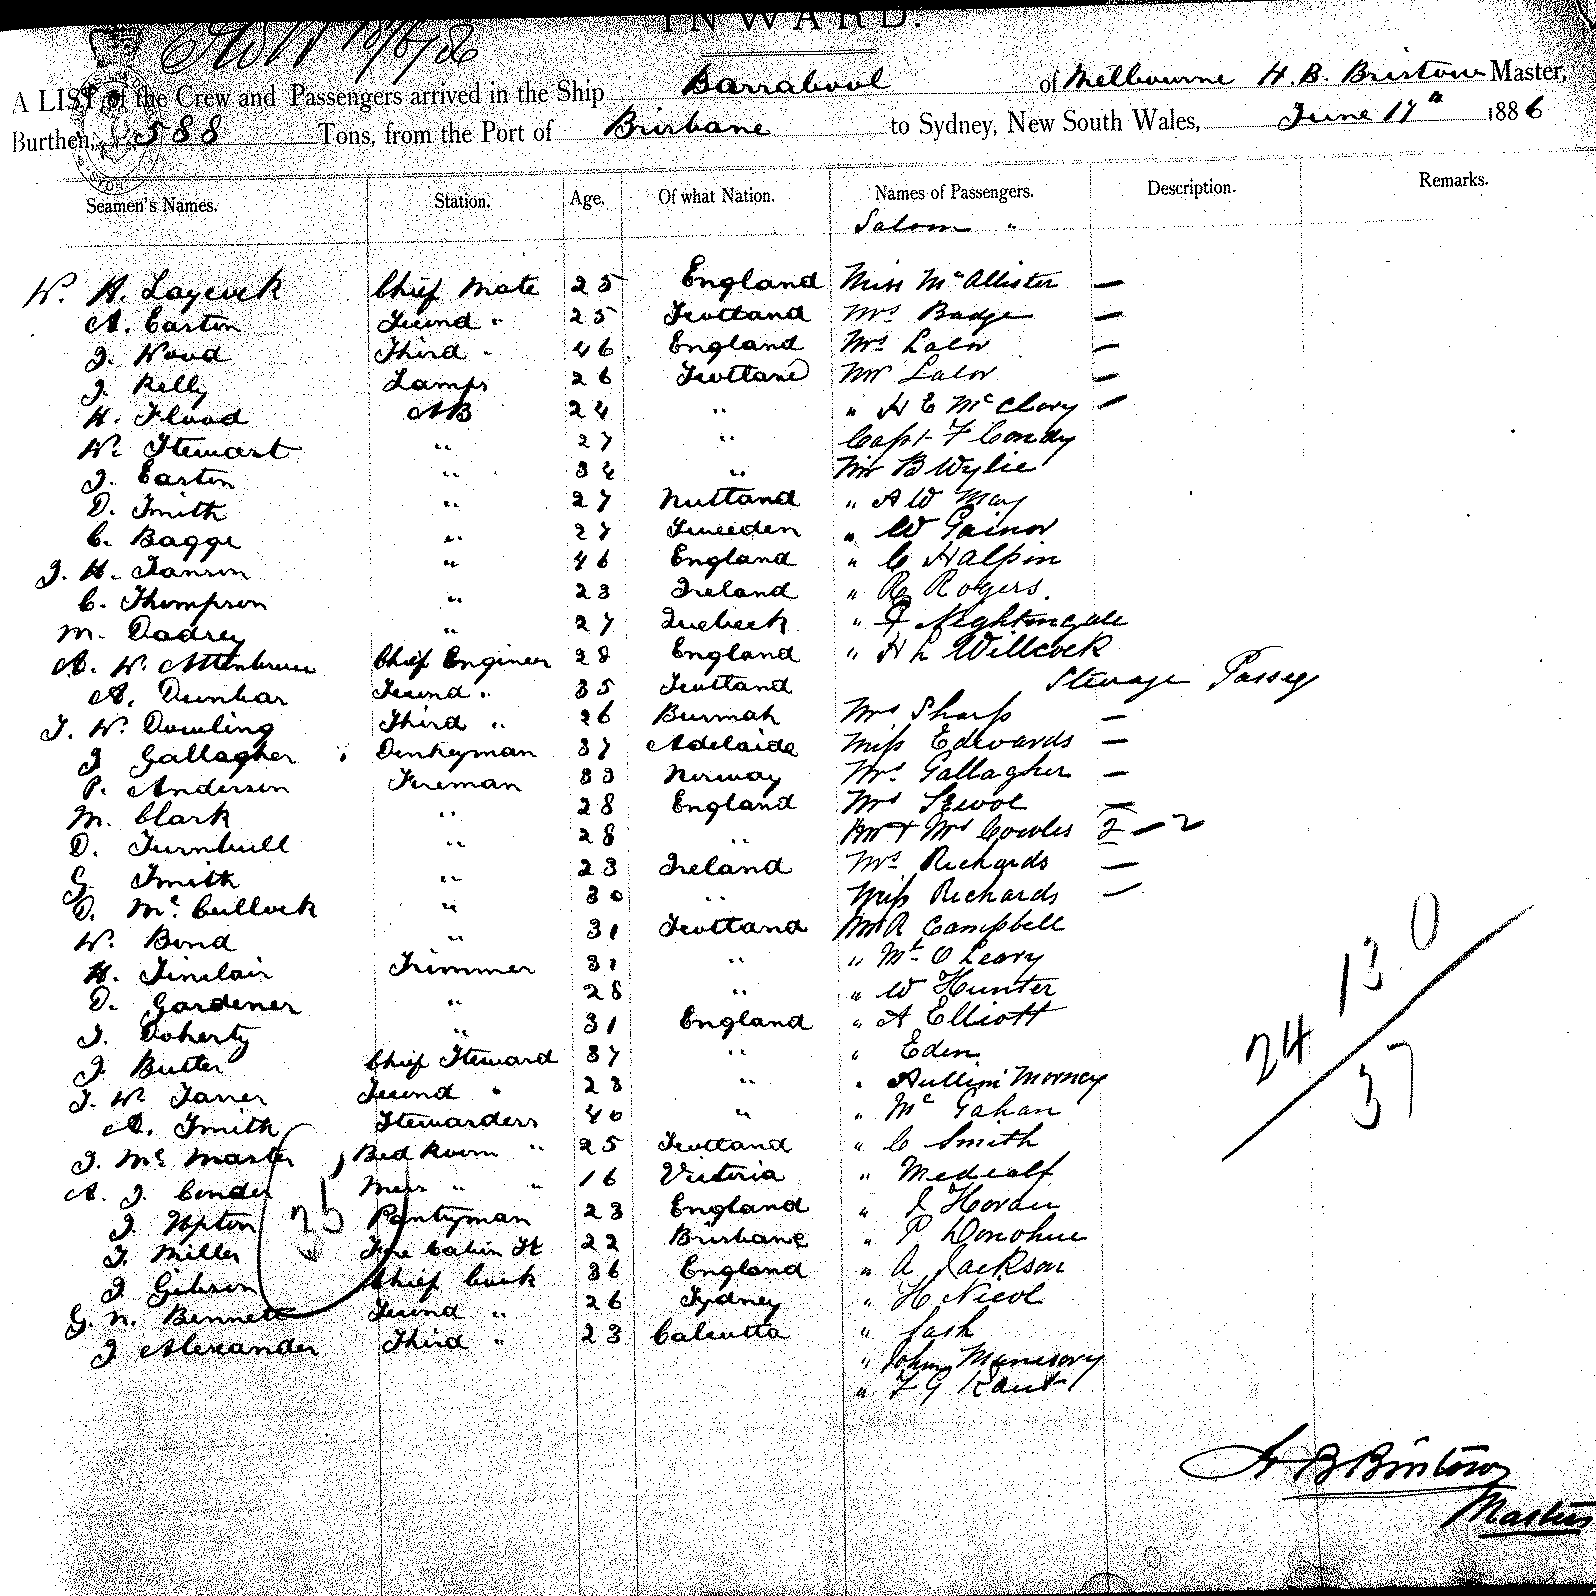 INWARD.
A LIST of the Crew and Passengers arrived in the Ship Barrabool of Melbourne H. B. Bristow Master,
Burthen, 588 Tons, from the Port of Brisbane to Sydney, New South Wales, June 17th 1886
Seamen's Names. Station. Age. Of what Nation. Names of Passengers. Description. Remarks.
Saloon "
W. H. Laycock Chief Mate 25 England Miss McAllister —
A. Easton Second " 25 Scotland Mrs Badge —
J. Wood Third " 46 England Mrs Lalor —
J. Kelly Lamps 26 Scotland Mr Lalor —
H. Flood AB 24 " " H E McClory —
W. Stewart " 27 " Capt F Condy
J. Easton " 34 " Mr B Wylie
D. Smith " 27 " A W May
C. Bagge " 27 Sweeden " W Gainor
J. H. Janson " 46 England " C Halpin
C. Thompson " 23 Ireland " R Rogers.
M. Dadrey " 27 Quebeck " F Nightingale
A. W. Chief Engineer 28 England " H L Willcock
A. Dunbar Second " 35 Scotland Steerage Passeg
J. W. Dowling Third " 26 Burmah Mrs Sharp —
J Gallagher Donkeyman 37 Adelaide Miss Edwards —
P. Anderson Fireman 33 Norway Mrs Gallagher —
M. Clark " 28 England Mrs —
D. Turnbull " 28 " Mr & Mrs Cowles 2 — 2
G Smith " 23 Ireland Mrs Richards —
D. McCullock " 30 " Miss Richards —
W. Bond " 31 Scotland Mr R Campbell
H. Sinclair Trimmer 31 " " Mt O Leary
D. Gardener " 28 " " W Hunter
J. Doherty " 31 England " A Elliott
J. Butler Chief Steward 37 " " Eden
J. W. Second " 28 " " Morney
A. Smith Stewardess 40 " " Mc Gahan
J. Mc Master Bed Room " 25 Scotland " C Smith
A. J. Conder Mess " " 16 Victoria " Medcalf
J. Upton Pantryman 23 England " J Horan
J. Miller Fore Cabin St 22 Brisbane " P Donohue
J Gibson Chief Cook 36 England " A Jackson
G. N. Bennett Second " 26 Sydney " H Nicol
J Alexander Third " 23 Calcutta " Cash
" John
" F G Kant
13 0
24
37
35
H B Bristow
Master